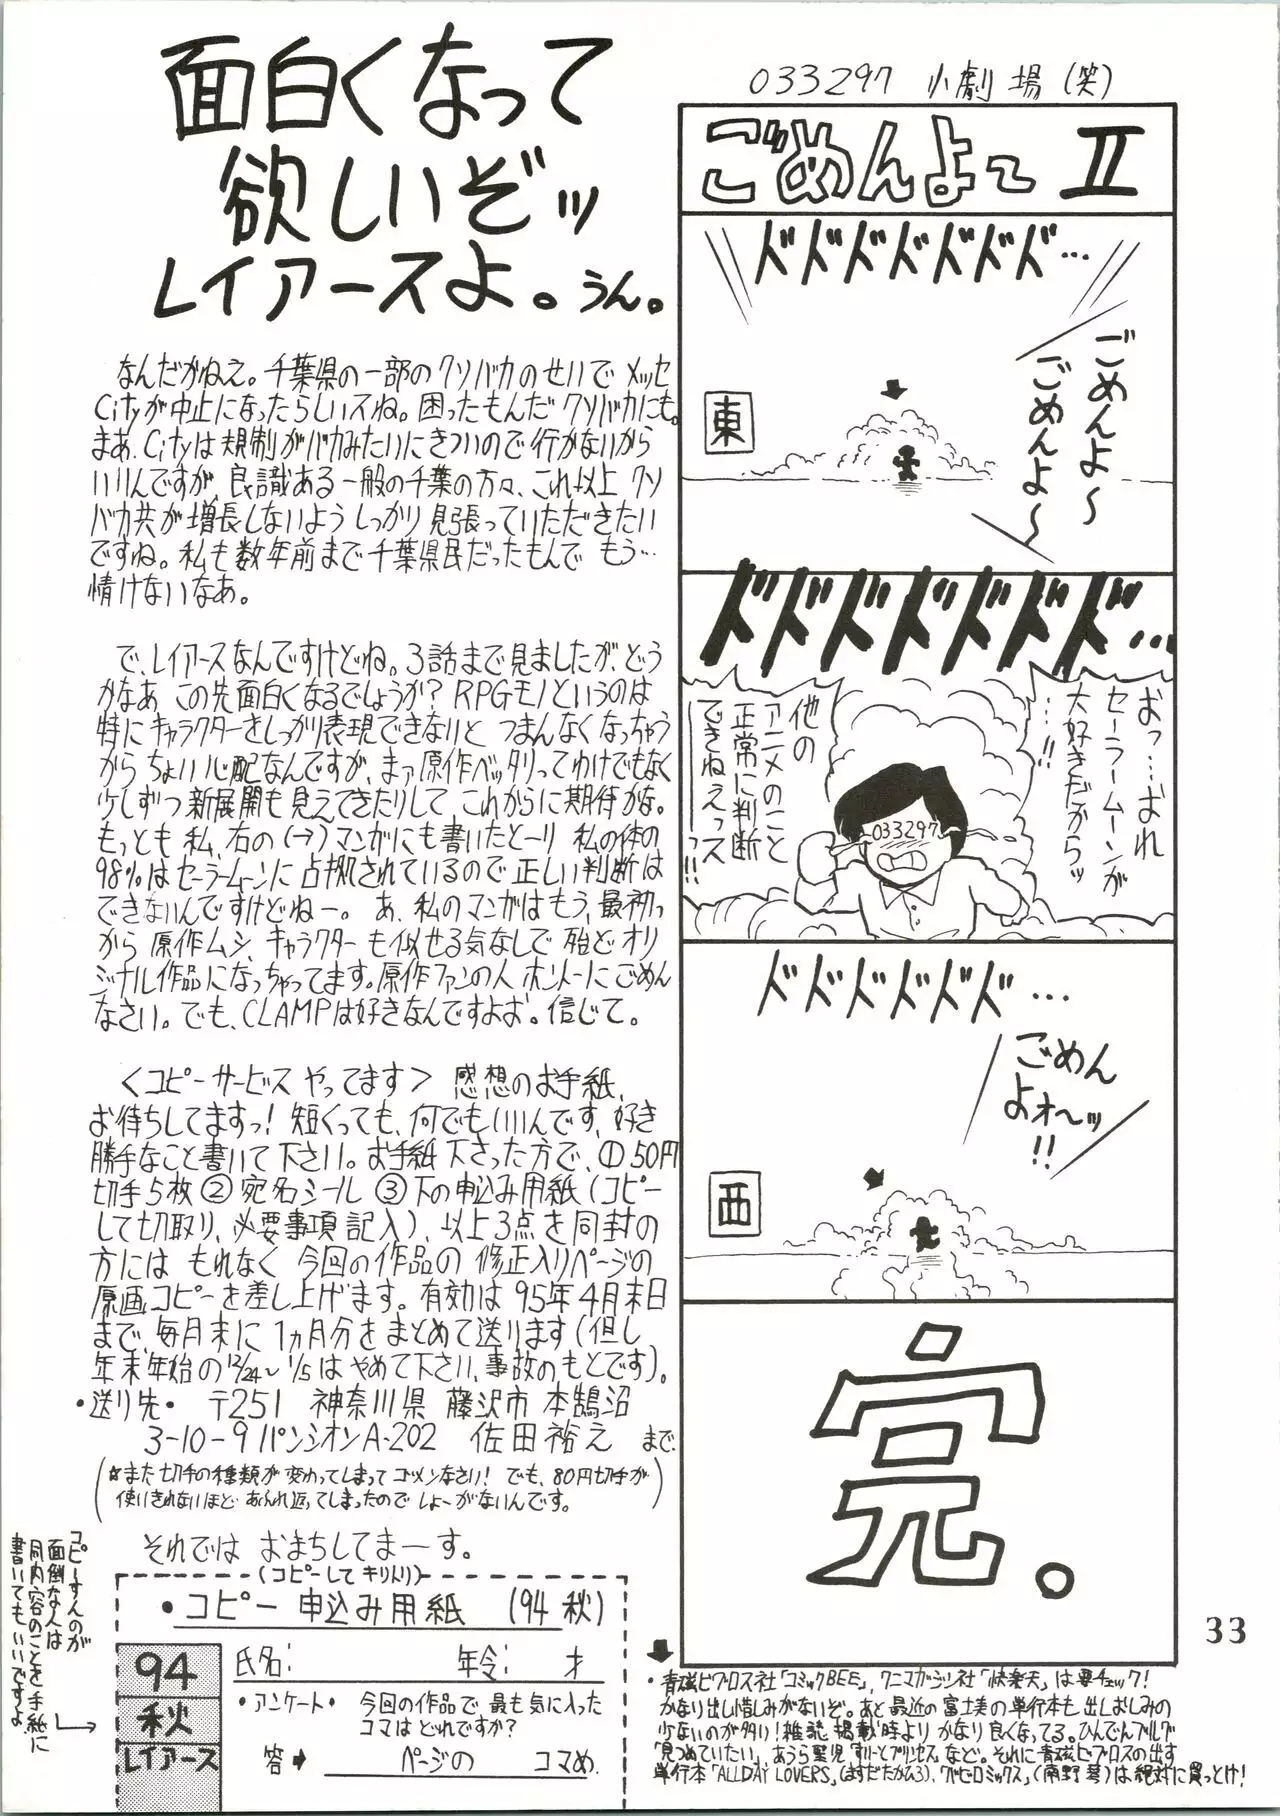 面白くなって
欲しいぞッ
レイアースよ。うん。
なんだかねえ。千葉県の一部のクソバカのせいでメッセ
Cityが中止になったらしいスね。困ったもんだクソバカにも。
まあ、Cityは規制がバカみたいにきついので行かないから
いいんですが、良識ある一般の千葉の方々、これ以上クソ
バカ共が増長しないようしっかり見張っていただきたい
ですね。私も数年前まで千葉県民だったもんで もう…
情けないなあ。
で、レイアースなんですけどね。3話まで見ましたが、どう
かなあ この先面白くなるでしょうか? RPGモノというのは
特にキャラクターをしっかり表現できないと つまんなくなっちゃう
からちょい心配なんですが、まァ原作ベッタリってわけでもなく
少しずつ新展開も見えてきたりして これからに期待かな。
もっとも私、右の(→)マンガにも書いたとーり 私の体の
98%はセーラームーンに占拠されているので正しい判断は
できないんですけどねー。あ、私のマンガはもう、最初っ
から 原作ムシ、キャラクターも似せる気なしで 殆どオリ
ジナル作品になっちゃってます。原作ファンの人 ホントーにごめん
なさい。でも、CLAMPは好きなんですよお。信じて。
〈コピーサービス やってます〉 感想のお手紙、
お待ちしてますっ! 短くても、何でもいいんです、好き
勝手なこと書いて下さい。お手紙下さった方で、①50円
切手5枚 ②宛名シール ③下の申込み用紙(コピー
して切取り、必要事項記入)、以上3点を同封の
方には もれなく 今回の作品の 修正入りページの
原画コピーを差し上げます。有効は 95年4月末日
まで、毎月末に 1ヵ月分をまとめて送ります(但し
年末年始の12/24~1/5は やめて下さい、事故のもとです)。
・送り先・ 〒251 神奈川県 藤沢市 本鵠沼
3-10-9 パンシオンA-202 佐田裕之 まで。
(☆また切手の種類が変わってしまってゴメンなさい! でも、80円切手が
使いきれないほど あふれ返ってしまったので しょーがないんです。)
それでは おまちしてまーす。
コピーすんのが
面倒な人は
同内容のことを手紙に
書いてもいいですよ
(コピーして キリトリ)
・コピー 申込み用紙 (94 秋)
94
秋
レイアース
氏名: 年令: 才
・アンケート・ 今回の作品で 最も気に入った
コマは どれですか?
答➡ ページの コマめ.
033297 小劇場(笑)
ごめんよ~ II
ドドドドドドド…
ごめんよ~
ごめんよ~
東
ドドドドドドド…
おっ…おれ
セーラームーンが
大好きだからッ
…!!
他の
アニメのこと
正常に判断
できねえっス
っ!!
033297
ドドドドドド…
ごめん
よォ~ッ
!!
西
完。
・青磁ビブロス社「コミックBEE」、ワニマガジン社「快楽天」は要チェック!
かなり出し惜しみがないぞ。あと最近の富士美の単行本も出しおしみの
少ないのが多い! 雑誌掲載時より かなり良くなってる。ひんでんブルグ
「見つめていたい」、あうら聖児「すいーとプリンセス」など。それに青磁ビブロスの出す
単行本「ALLDAY LOVERS」(ますだたかひろ)、「ベビロミックス」(南野琴)は絶対に買っとけ!
33